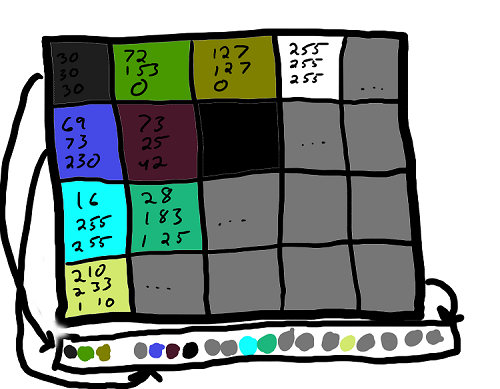 30
30
30
72
153
0
127
127
0
255
255
255
...
69
73
230
73
25
42
...
16
255
255
28
183
125
...
210
233
110
...